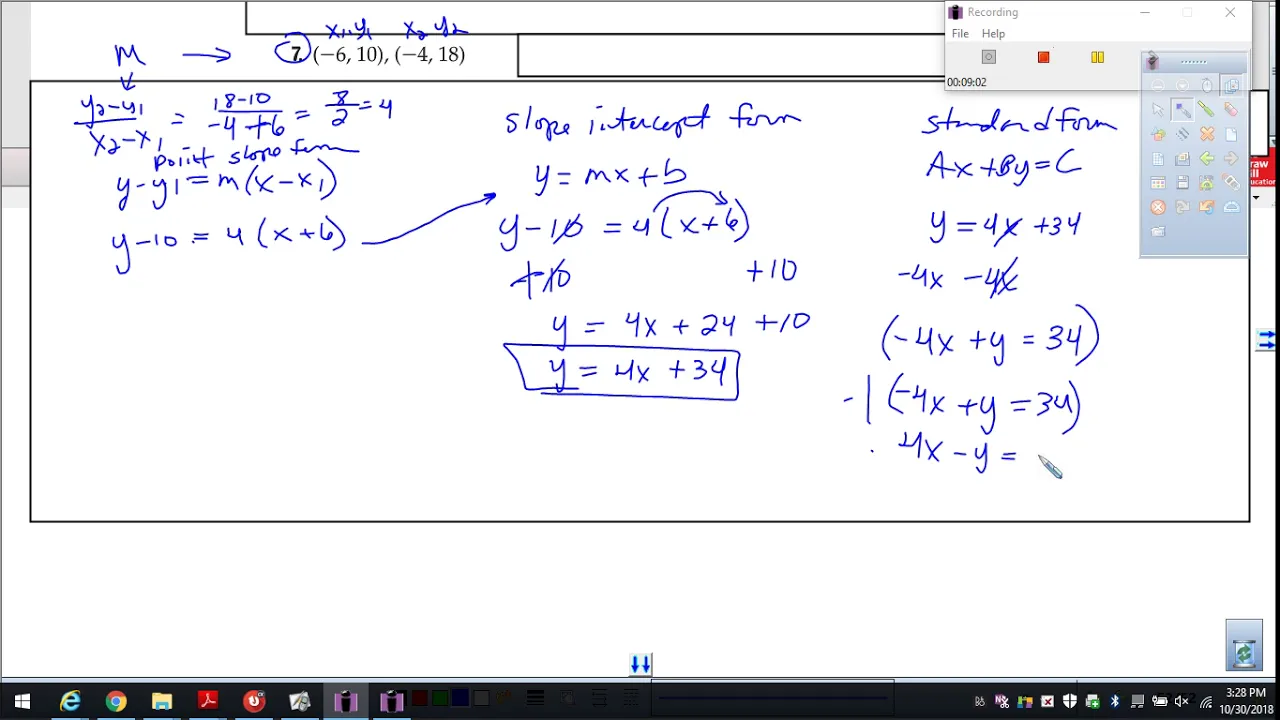 Recording
File Help
00:09:02
x₁,y₁ x₂ y₂
M → 7. (−6, 10), (−4, 18)
y₂−y₁/x₂−x₁ = 18−10/−4+6 = 8/2 = 4
point slope form
y−y₁ = m(x−x₁)
y−10 = 4(x+6)
slope intercept form
y = mx+b
y−10 = 4(x+6)
+10 +10
y = 4x + 24 +10
y = 4x +34
standard form
Ax+By=C
y = 4x +34
-4x -4x
(-4x +y = 34)
-1(-4x +y = 34)
4x - y =
3:28 PM
10/30/2018